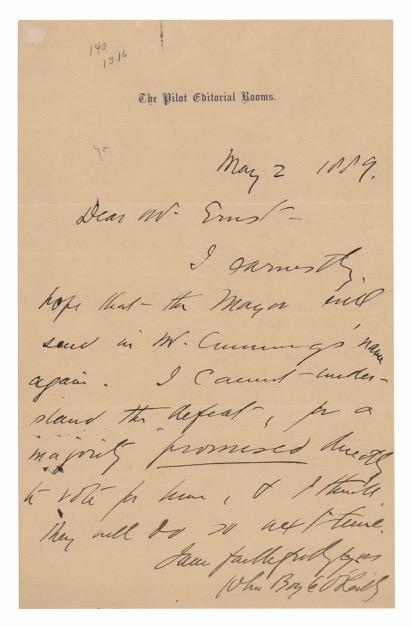 140
1316
The Pilot Editorial Rooms.
May 2 1889.
Dear Mr. Ernst -
I earnestly
hope that the Mayor will
send in Mr. Cummings' name
again. I cannot under-
stand the defeat, for a
majority promised directly
to vote for him, & I think
they will do so next time.
I am faithfully yrs
John Boyle O'Reilly